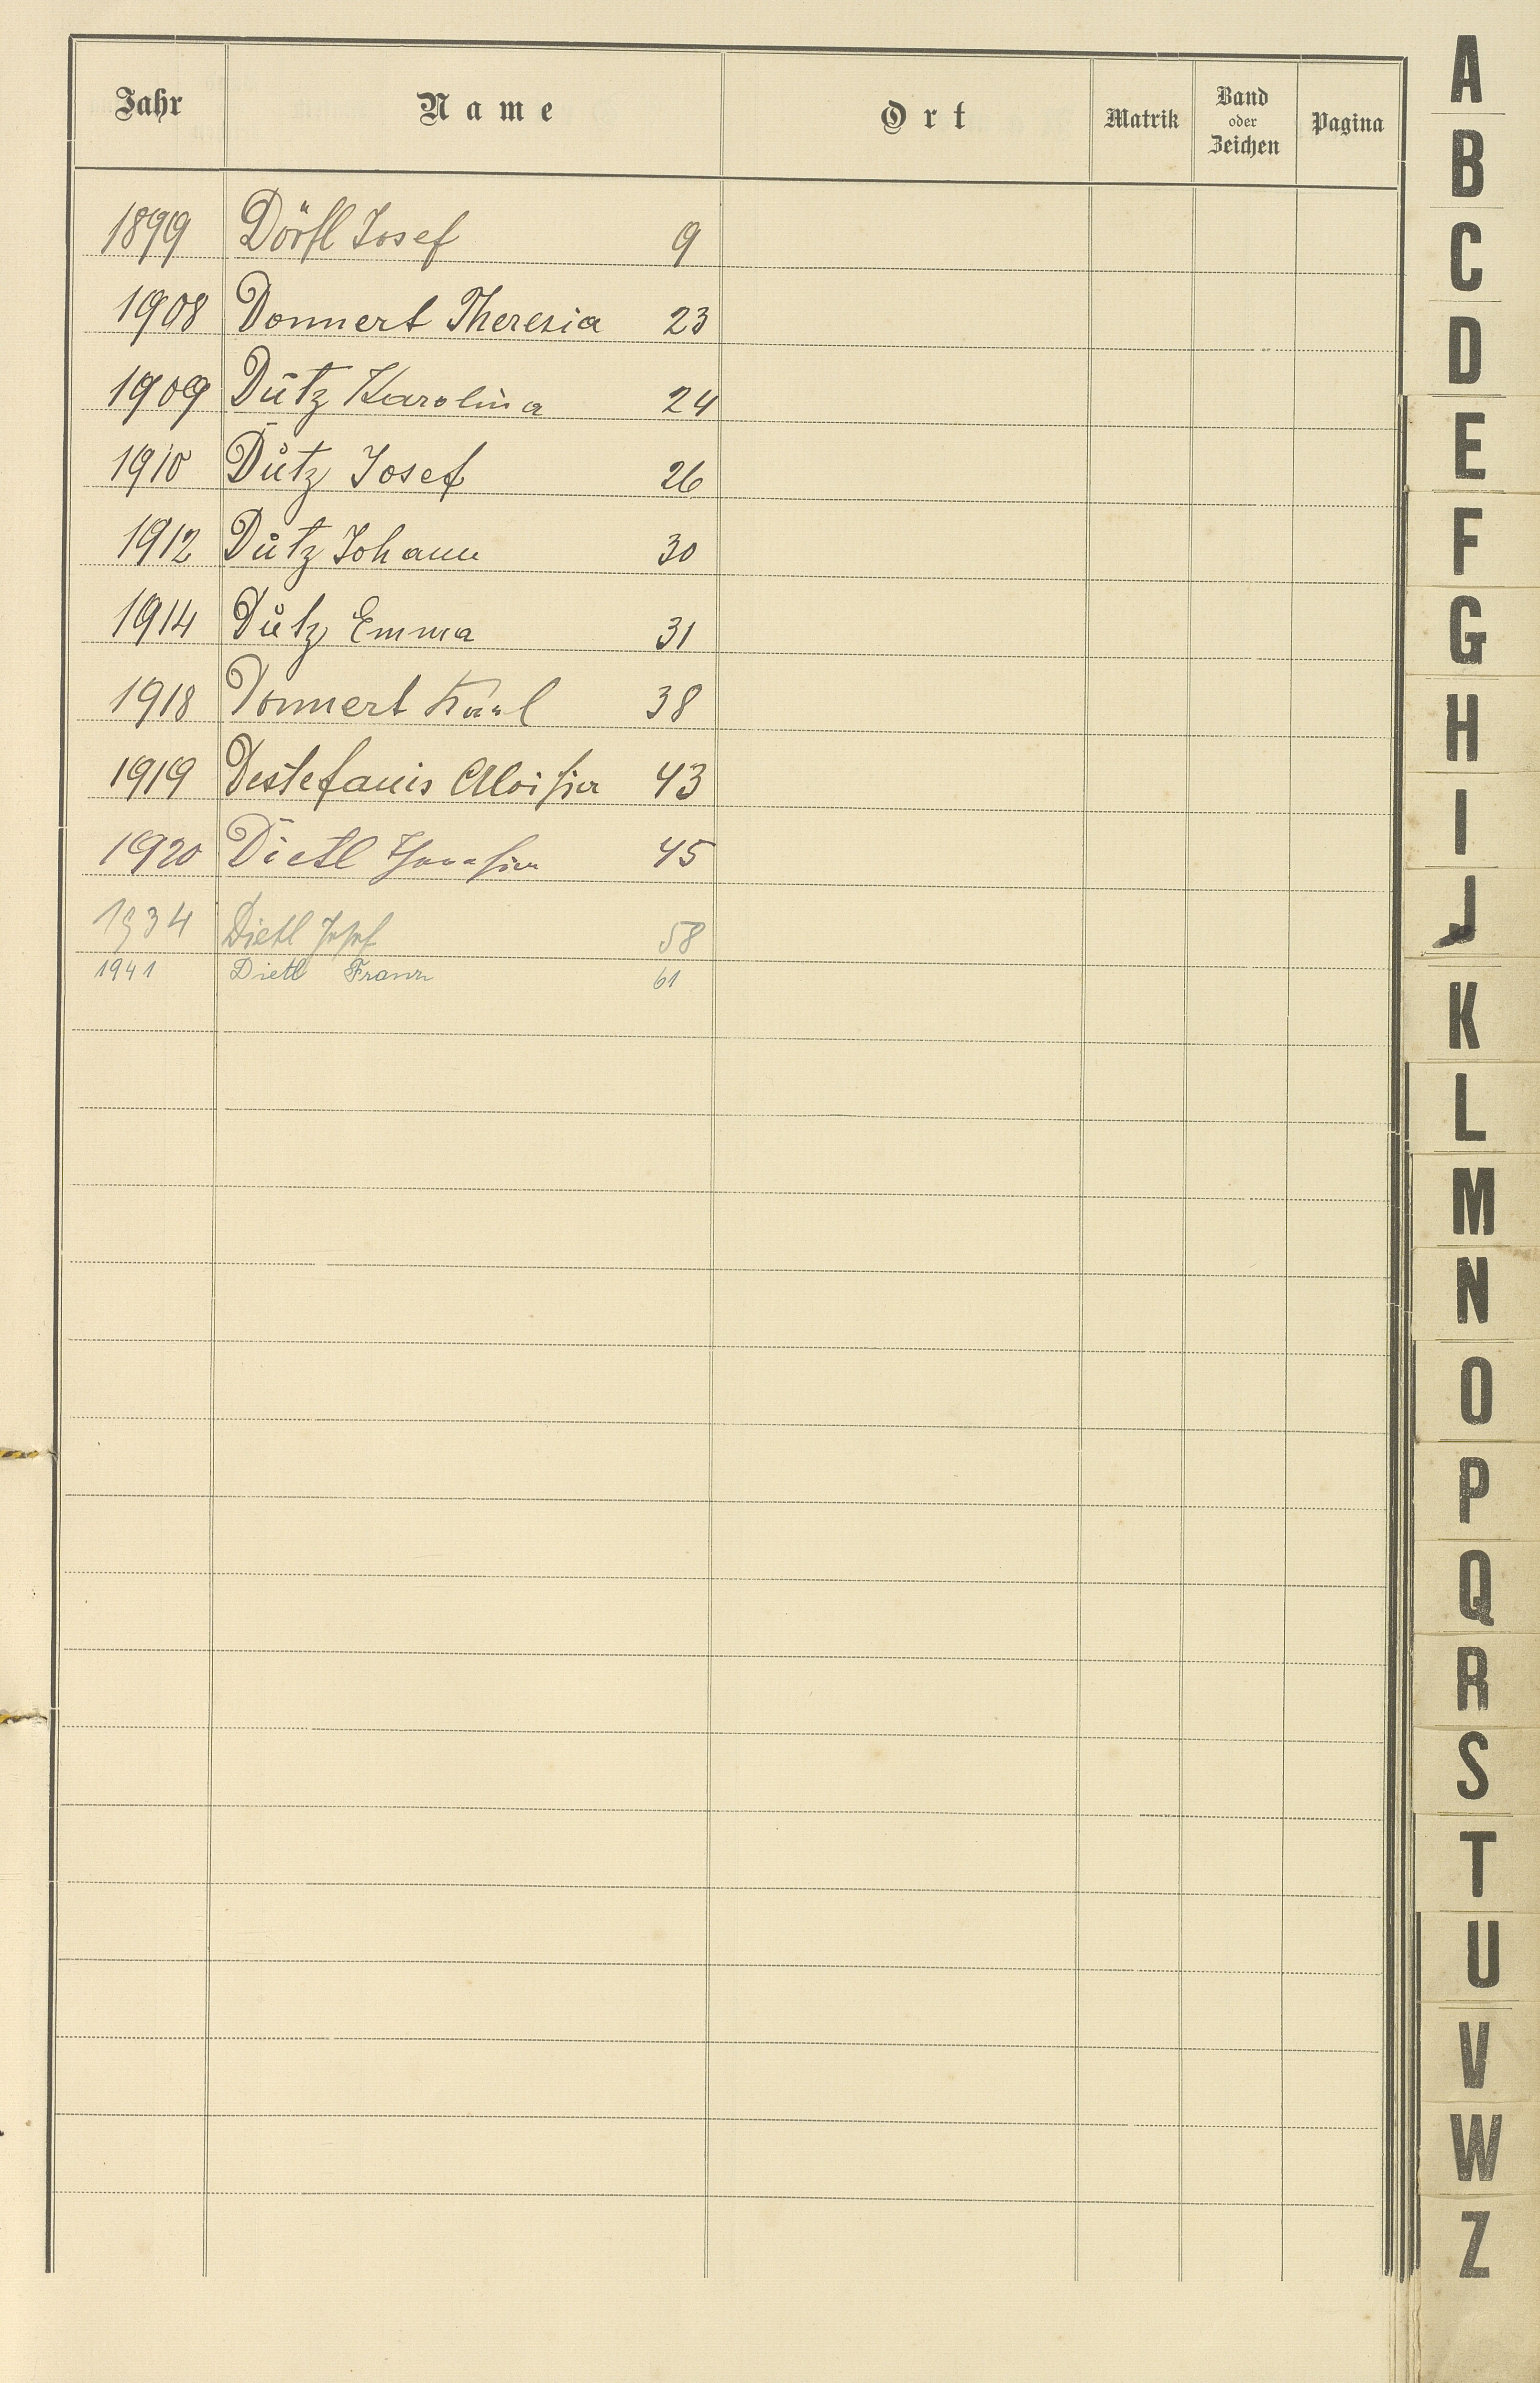 Jahr Name Ort Matrik Band oder Zeichen Pagina
1899 Dörfl Josef 9
1908 Donnert Theresia 23
1909 Dütz Karolina 24
1910 Důtz Josef 26
1912 Důtz Johann 30
1914 Důtz Emma 31
1918 Donnert Karl 38
1919 Destefanis Aloisia 43
1920 Dietl 45
1934 Dietl Josef 58
1941 Dietl Franz 61
A
B
C
D
E
F
G
H
I
J
K
L
M
N
O
P
Q
R
S
T
U
V
W
Z